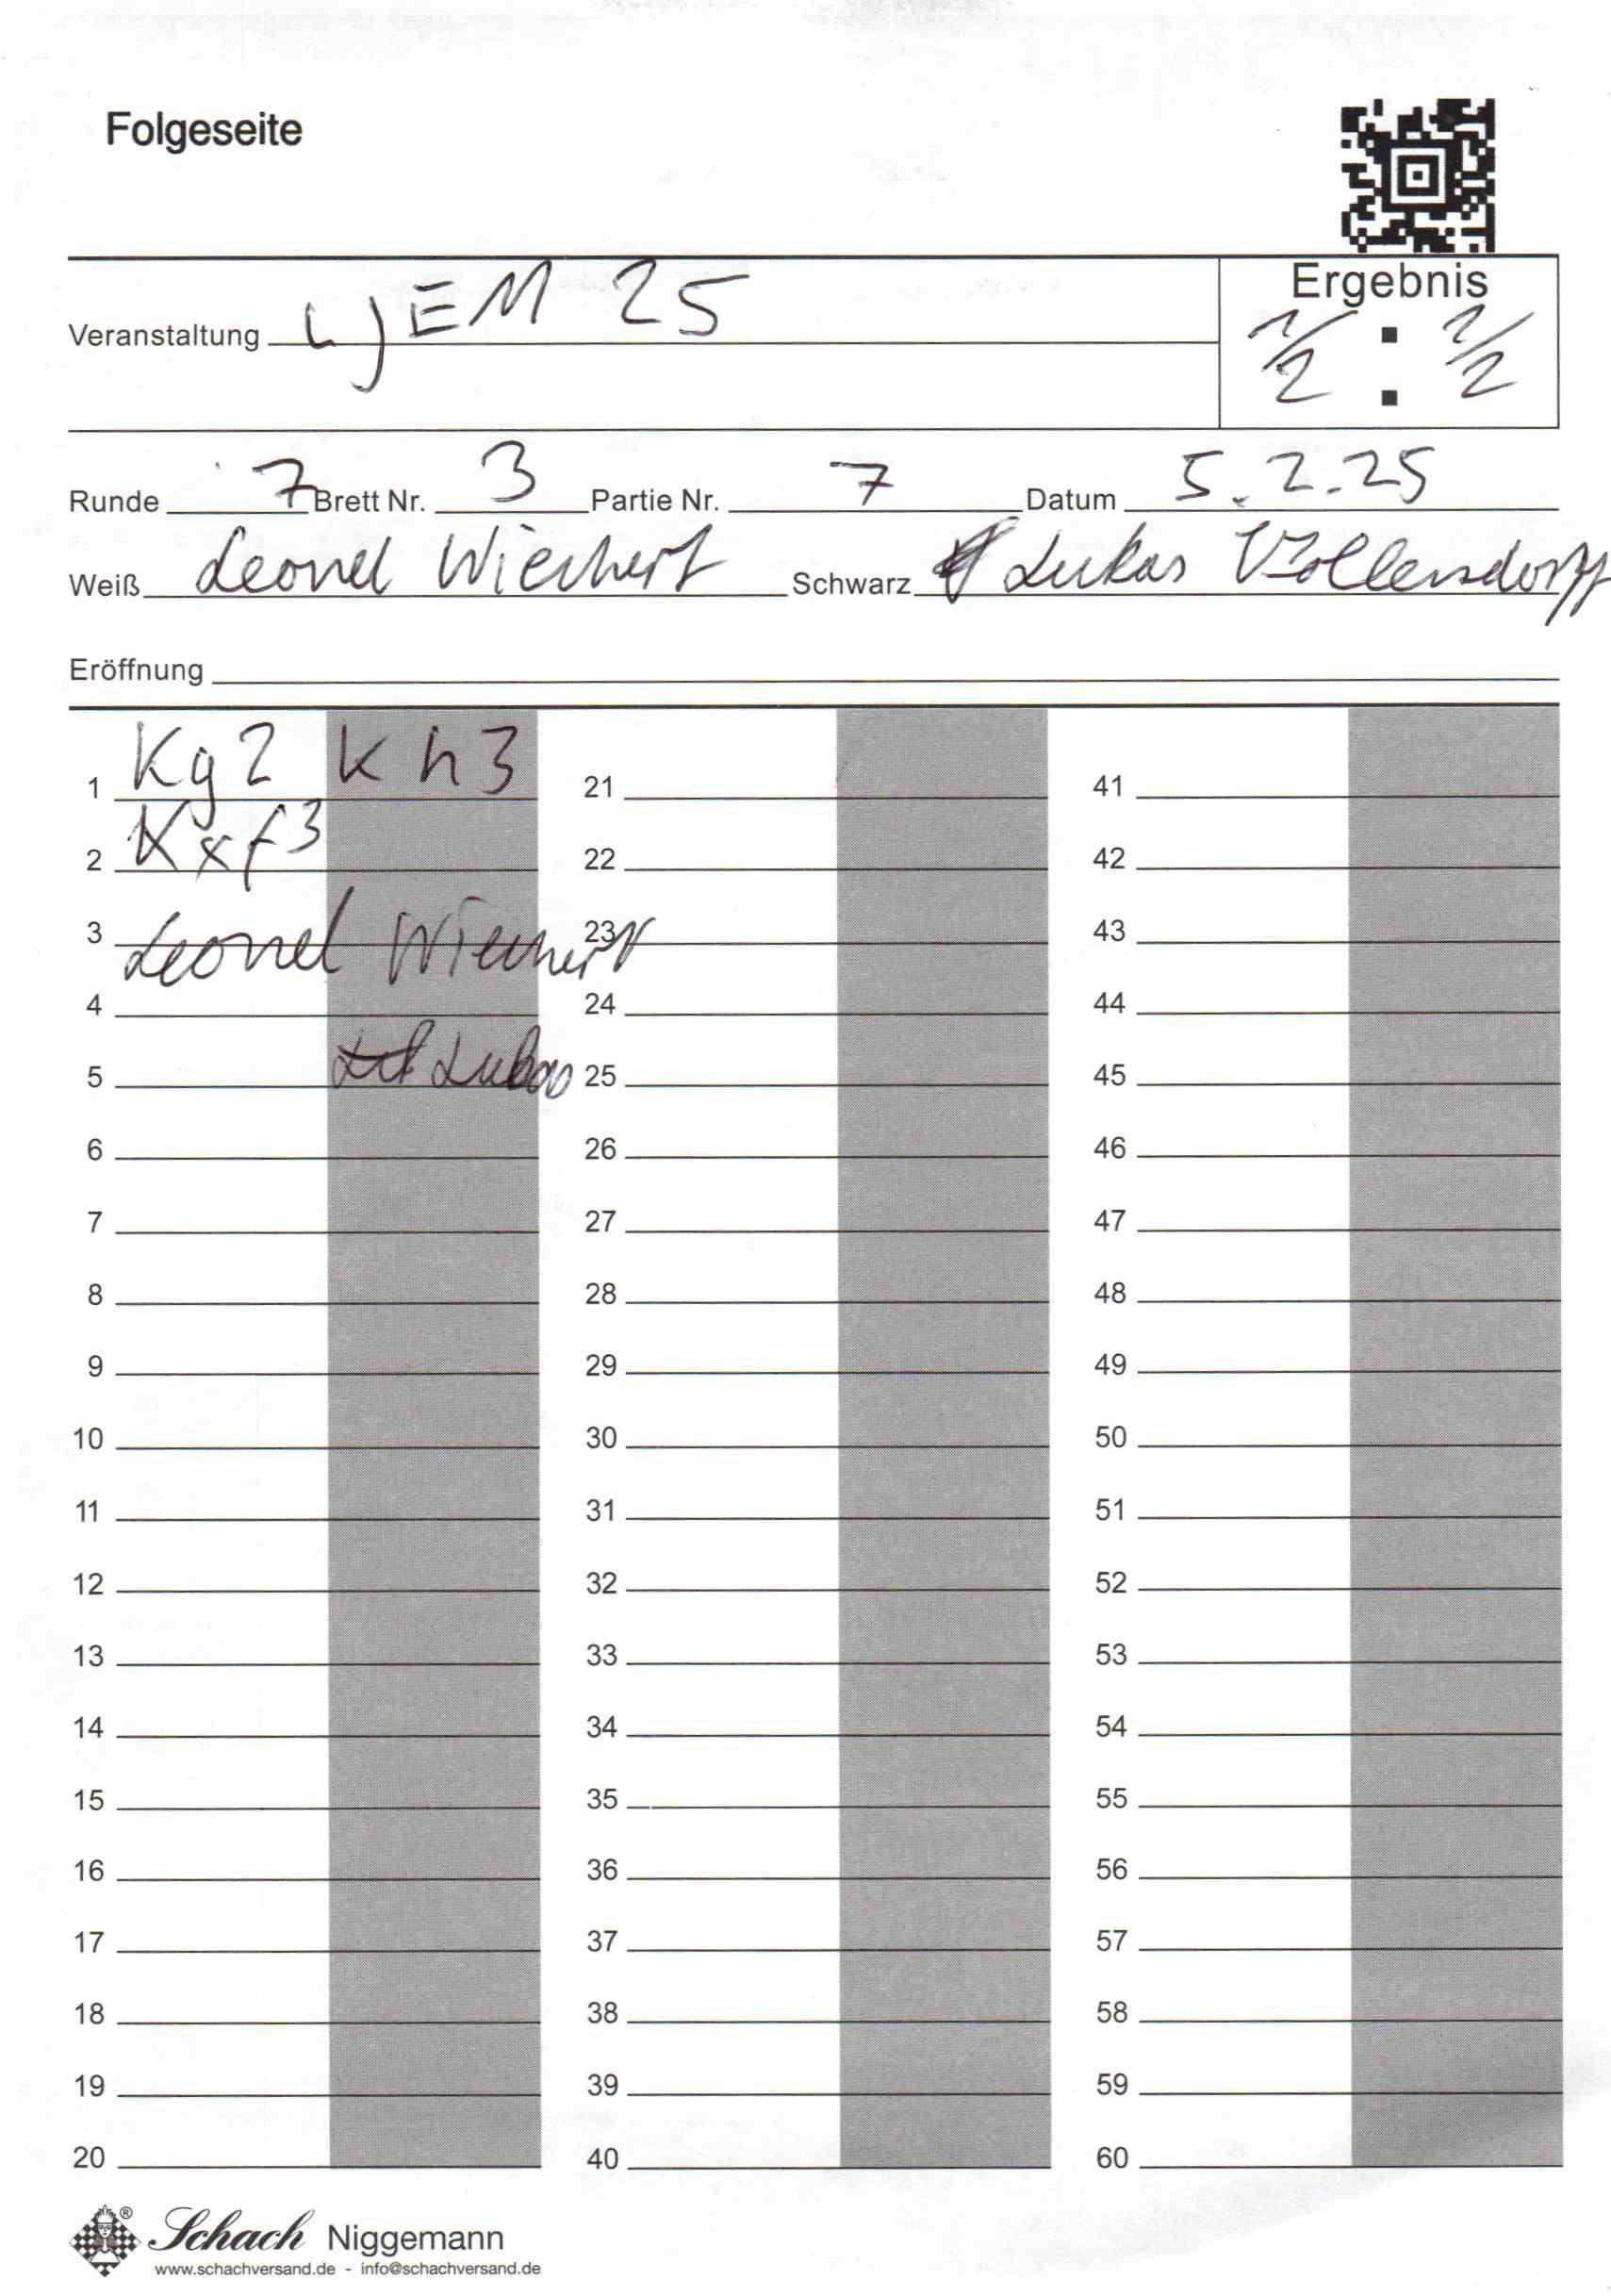 Folgeseite
Veranstaltung LJEM 25
Ergebnis
1/2 : 1/2
Runde 7 Brett Nr. 3 Partie Nr. 7 Datum 5.2.25
Weiß Leonel Wiechert Schwarz Lukas Vollensdorff
Eröffnung
1 Kg2 Kh3 21 41
2 Kxf3 22 42
3 Leonel Wiechert 23 43
4 24 44
5 Lukas 25 45
6 26 46
7 27 47
8 28 48
9 29 49
10 30 50
11 31 51
12 32 52
13 33 53
14 34 54
15 35 55
16 36 56
17 37 57
18 38 58
19 39 59
20 40 60
® Schach Niggemann
www.schachversand.de - info@schachversand.de